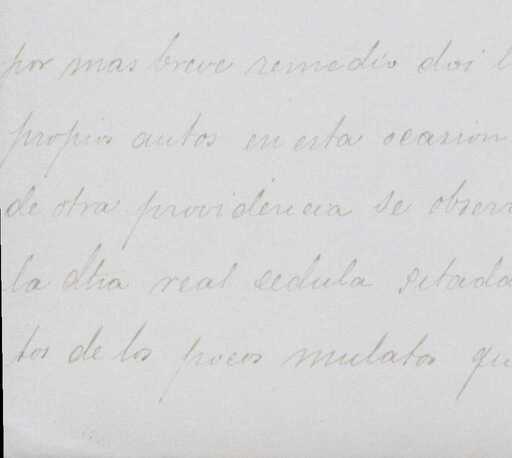 por mas breve remedio doi l
propios autos en esta ocasion
de otra providencia se observ
la dha real sedula sitada
tos de los pocos mulatos qu